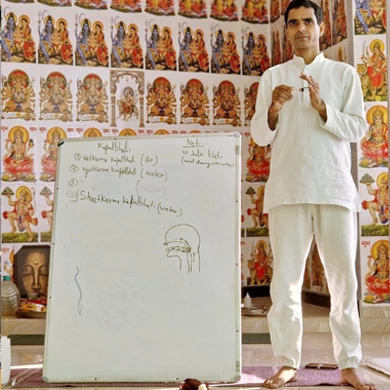 Kapalbhati
① Vatkrama Kapalbhati (Air)
② Vyutkrama Kapalbhati (water)
③
Sheetkrama Kapalbhati (water)
Neti
① Jala Neti
(nasal with water)